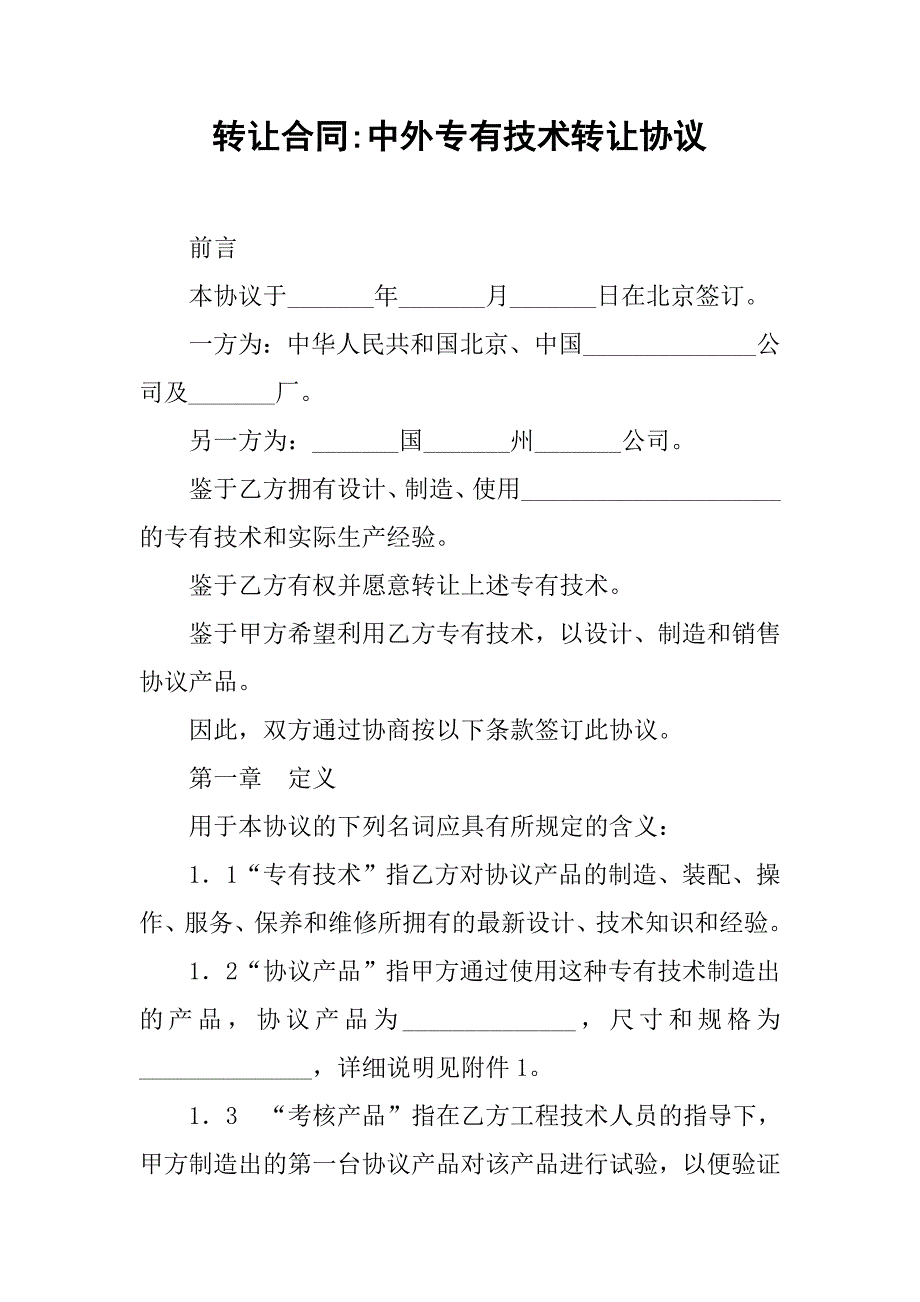 转让合同:中外专有技术转让协议
前言
本协议于_______年_______月_______日在北京签订。
一方为：中华人民共和国北京、中国______________公
司及_______厂。
另一方为：_______国_______州_______公司。
鉴于乙方拥有设计、制造、使用_____________________
的专有技术和实际生产经验。
鉴于乙方有权并愿意转让上述专有技术。
鉴于甲方希望利用乙方专有技术，以设计、制造和销售
协议产品。
因此，双方通过协商按以下条款签订此协议。
第一章　定义
用于本协议的下列名词应具有所规定的含义：
1．1“专有技术”指乙方对协议产品的制造、装配、操
作、服务、保养和维修所拥有的最新设计、技术知识和经验。
1．2“协议产品”指甲方通过使用这种专有技术制造出
的产品，协议产品为______________，尺寸和规格为
______________，详细说明见附件1。
1．3　“考核产品”指在乙方工程技术人员的指导下，
甲方制造出的第一台协议产品对该产品进行试验，以便验证